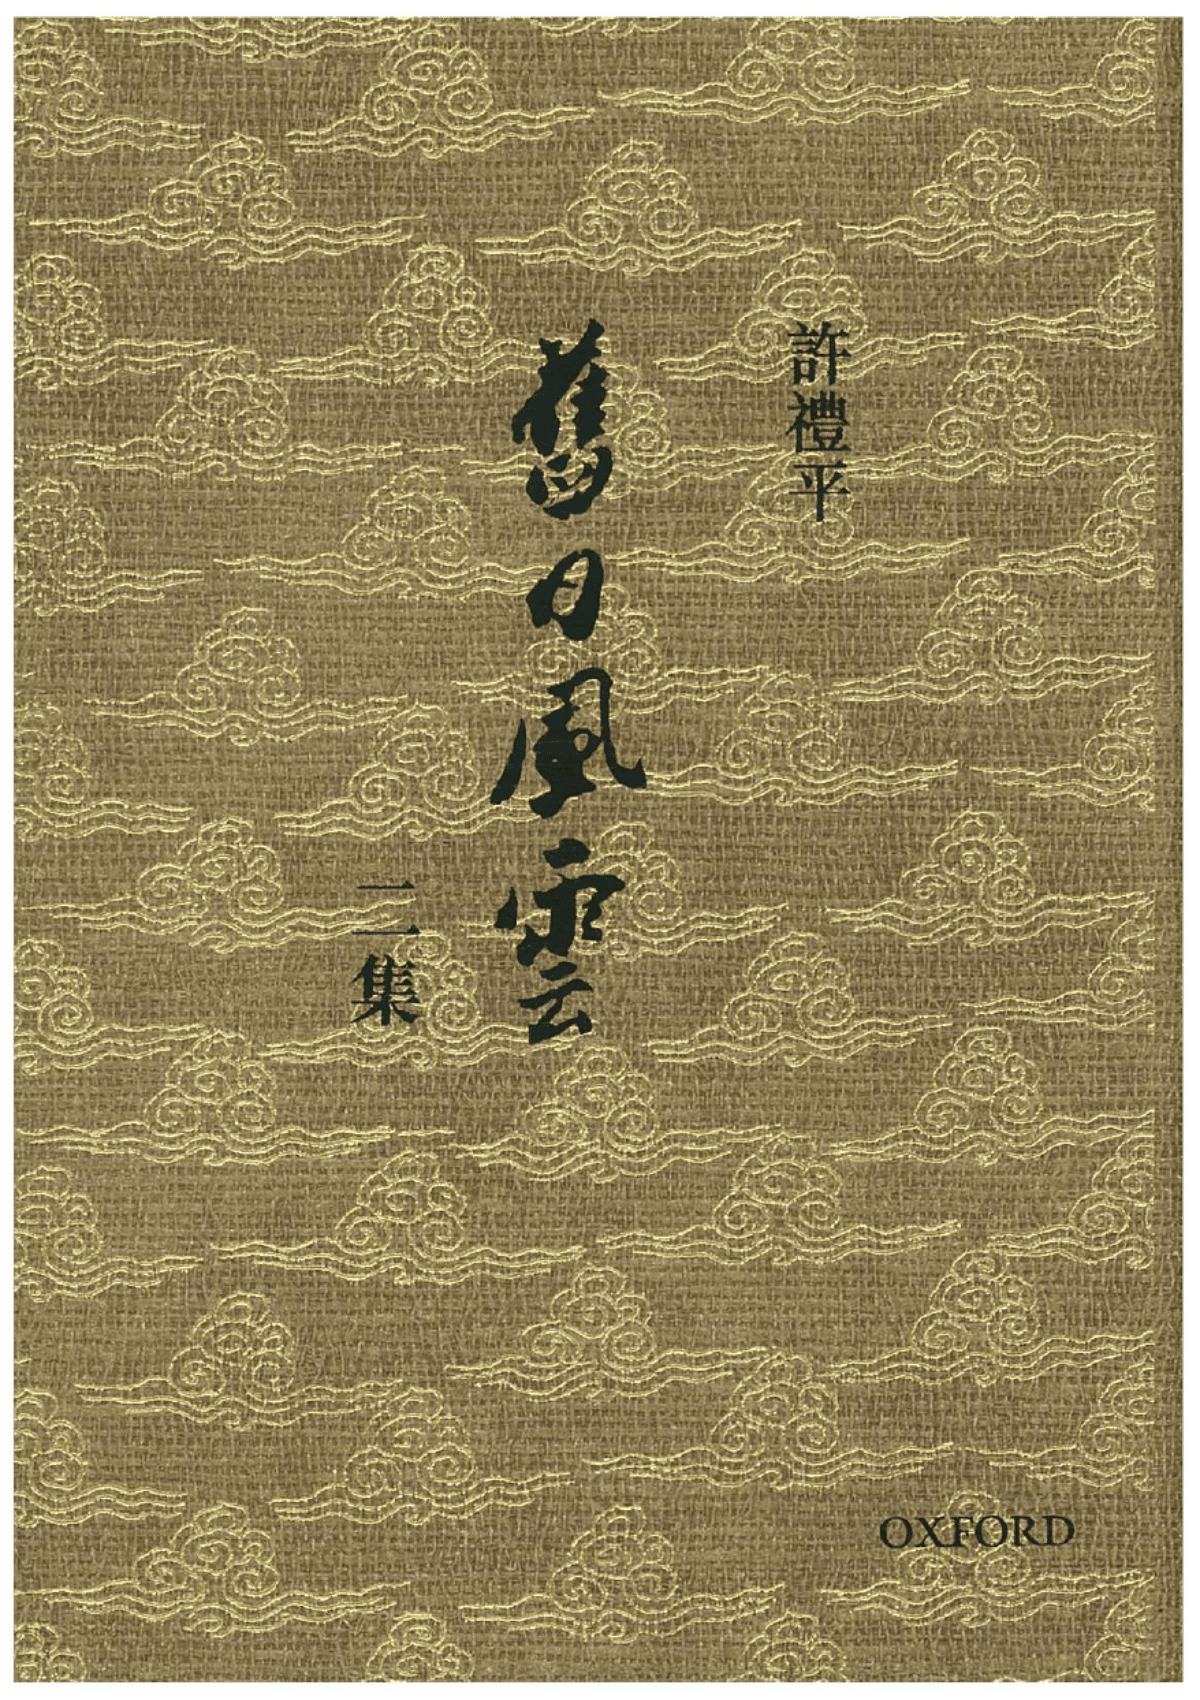 許禮平
舊日風雲
二集
OXFORD